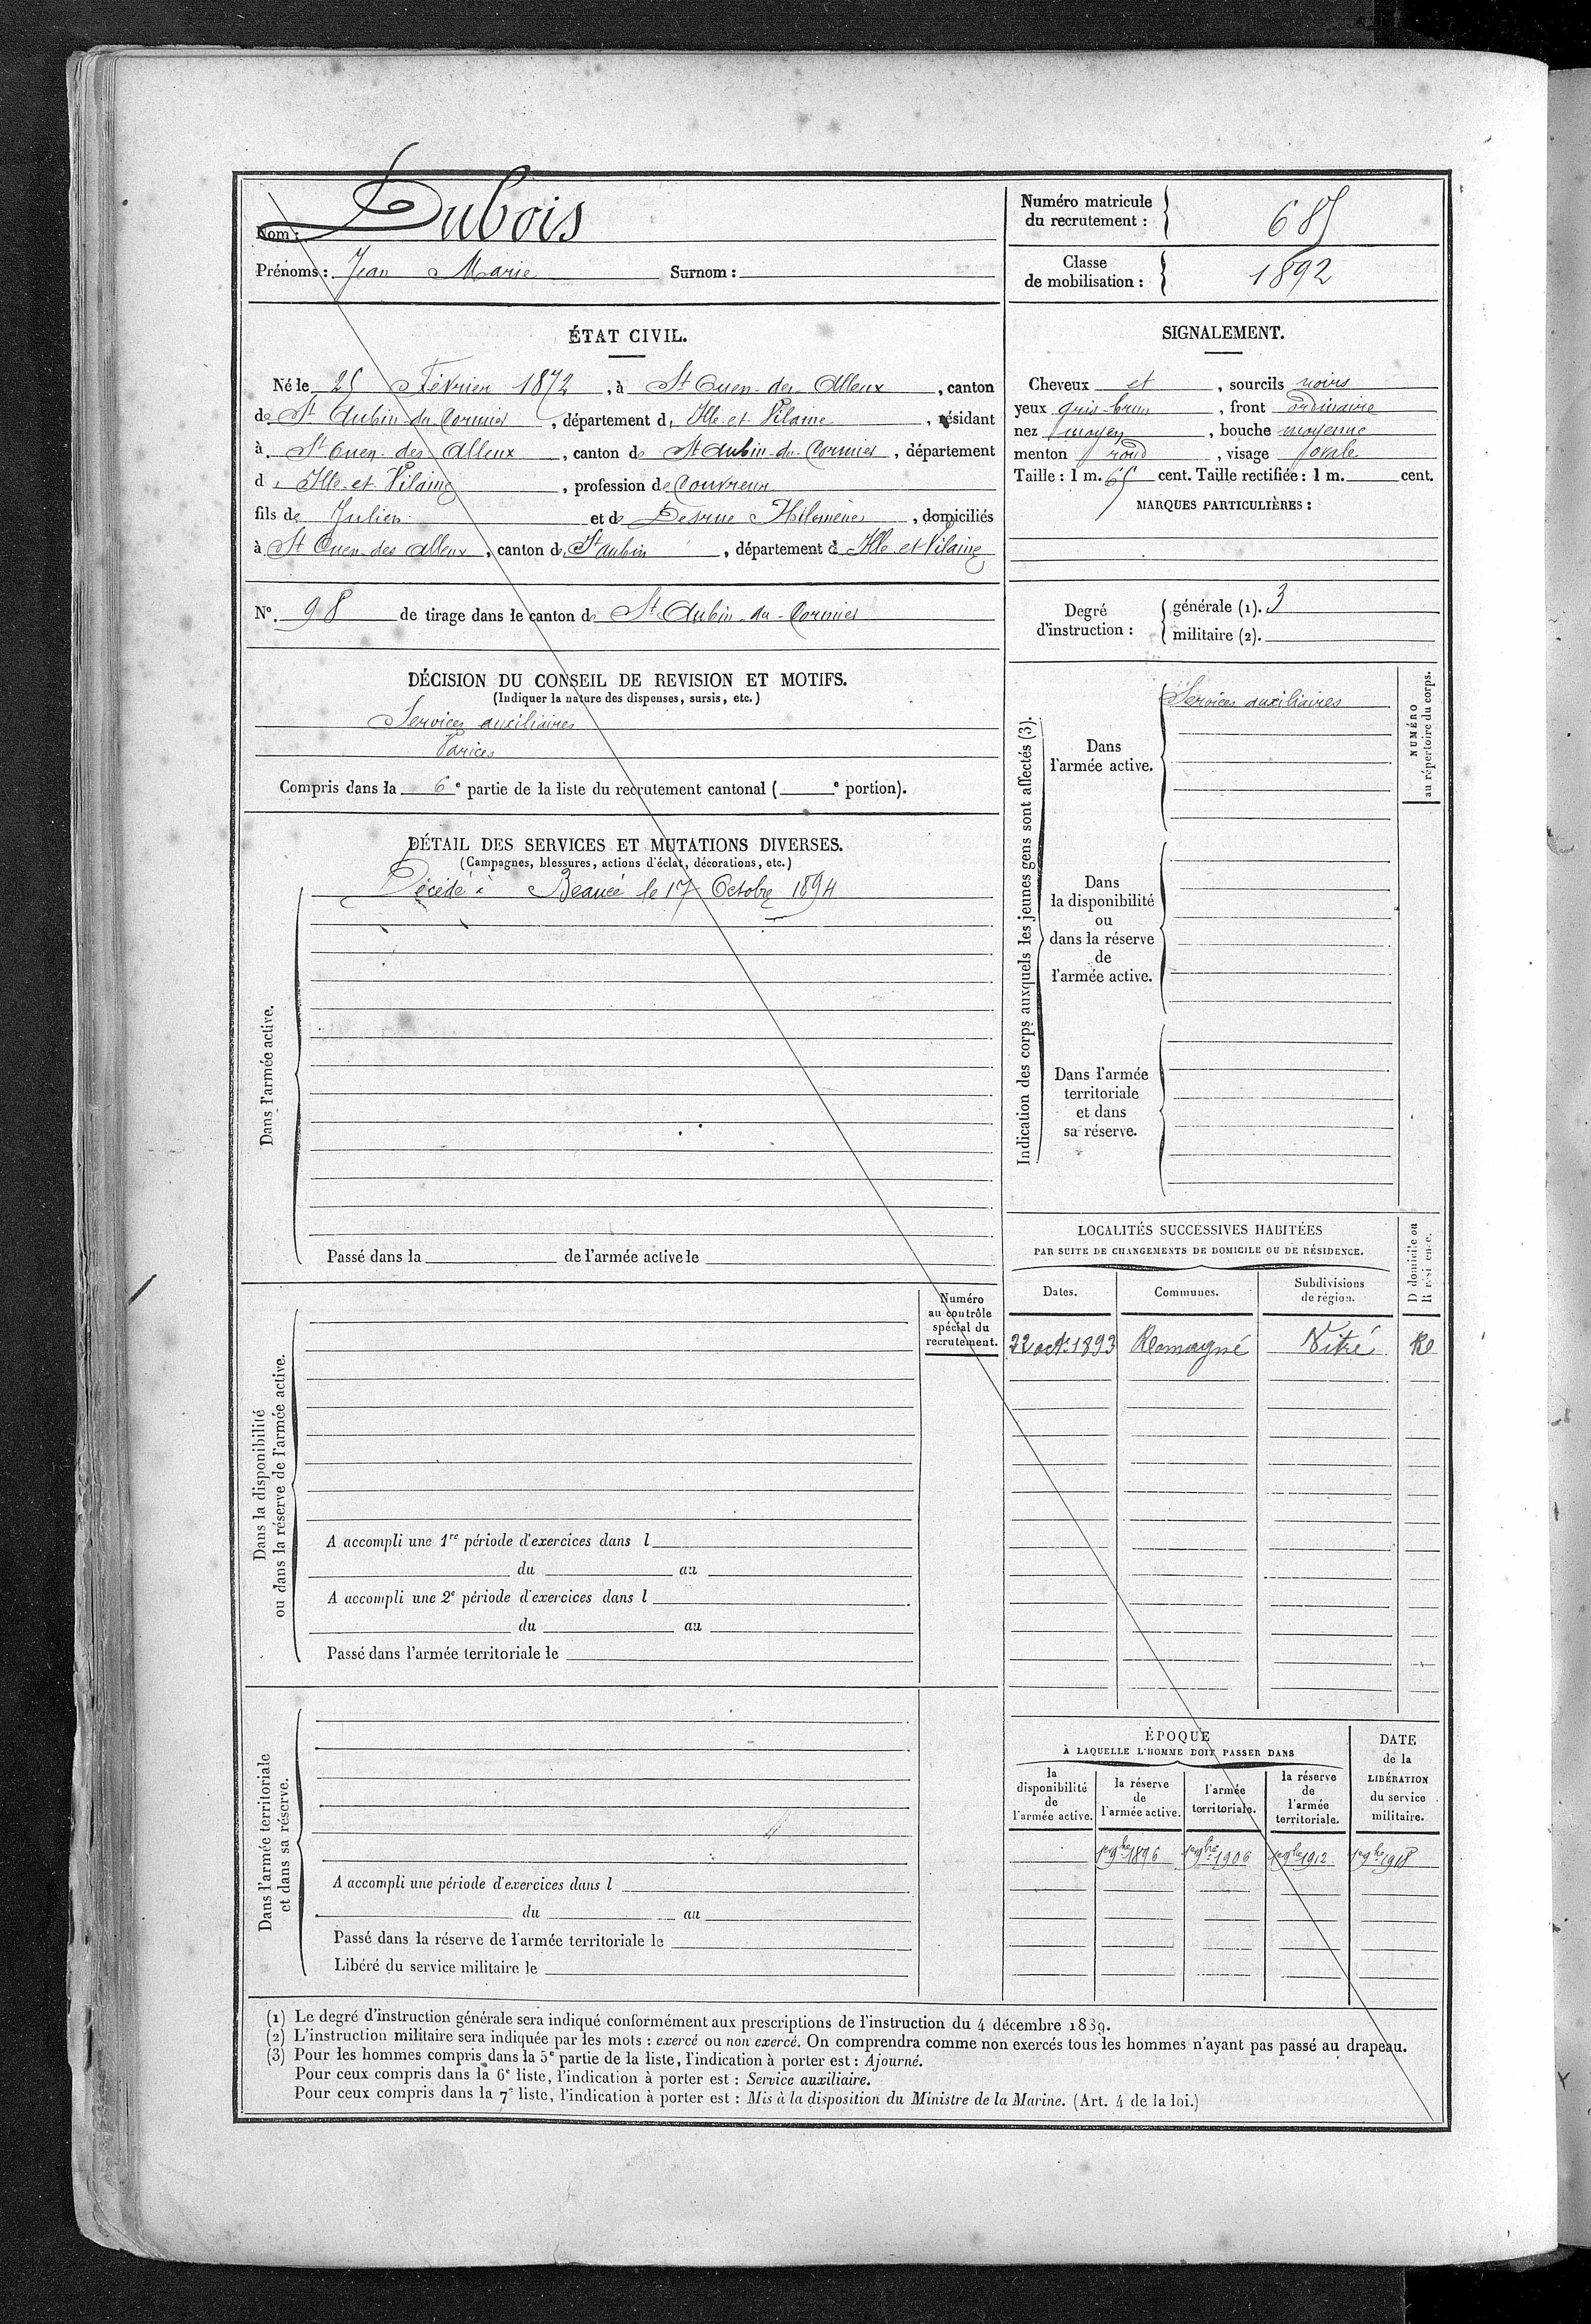 Nom : Dubois
Prénoms : Jean Marie Surnom :
Numéro matricule
du recrutement : 685
Classe
de mobilisation : 1892
ÉTAT CIVIL.
Né le 25 Février 1872, à St Ouen-des-Alleux, canton
de St Aubin-du-Cormier, département d' Ille-et-Vilaine, résidant
à St Ouen-des-Alleux, canton de St Aubin-du-Cormier, département
d' Ille-et-Vilaine, profession de Couvreur
fils de Julien et de Desrue, domiciliés
à St Ouen-des-Alleux, canton de St Aubin, département d' Ille-et-Vilaine
N°. 98 de tirage dans le canton de St Aubin-du-Cormier
SIGNALEMENT.
Cheveux et, sourcils noirs
yeux gris-brun, front ordinaire
nez moyen, bouche moyenne
menton rond, visage ovale
Taille : 1 m. 65 cent. Taille rectifiée : 1 m. cent.
MARQUES PARTICULIÈRES :
Degré
d'instruction :
générale (1). 3
militaire (2).
DÉCISION DU CONSEIL DE REVISION ET MOTIFS.
(Indiquer la nature des dispenses, sursis, etc.)
Services auxiliaires
Varices
Compris dans la 6e partie de la liste du recrutement cantonal ( e portion).
DÉTAIL DES SERVICES ET MUTATIONS DIVERSES.
(Campagnes, blessures, actions d'éclat, décorations, etc.)
Dans l'armée active.
Décédé à Beaucé le 17 Octobre 1894
Passé dans la de l'armée active le
Indication des corps auxquels les jeunes gens sont affectés (3).
Dans
l'armée active.
Services auxiliaires
NUMÉRO
au répertoire du corps.
Dans
la disponibilité
ou
dans la réserve
de
l'armée active.
Dans l'armée
territoriale
et dans
sa réserve.
Dans la disponibilité
ou dans la réserve de l'armée active.
Numéro
au contrôle
spécial du
recrutement.
A accompli une 1re période d'exercices dans l
du au
A accompli une 2e période d'exercices dans l
du au
Passé dans l'armée territoriale le
LOCALITÉS SUCCESSIVES HABITÉES
PAR SUITE DE CHANGEMENTS DE DOMICILE OU DE RÉSIDENCE.
Dates.
Communes.
Subdivisions
de région.
D domicile ou
R résidence.
22 oct. 1893 Romagné Vitré
Dans l'armée territoriale
et dans sa réserve.
A accompli une période d'exercices dans l
du au
Passé dans la réserve de l'armée territoriale le
Libéré du service militaire le
ÉPOQUE
À LAQUELLE L'HOMME DOIT PASSER DANS
la
disponibilité
de
l'armée active.
la réserve
de
l'armée active.
l'armée
territoriale.
la réserve
de
l'armée
territoriale.
DATE
de la
LIBÉRATION
du service
militaire.
1er 9bre 1896 1er 9bre 1906 1er 9bre 1912 1er 9bre 1918
(1) Le degré d'instruction générale sera indiqué conformément aux prescriptions de l'instruction du 4 décembre 1889.
(2) L'instruction militaire sera indiquée par les mots : exercé ou non exercé. On comprendra comme non exercés tous les hommes n'ayant pas passé au drapeau.
(3) Pour les hommes compris dans la 5e partie de la liste, l'indication à porter est : Ajourné.
Pour ceux compris dans la 6e liste, l'indication à porter est : Service auxiliaire.
Pour ceux compris dans la 7e liste, l'indication à porter est : Mis à la disposition du Ministre de la Marine. (Art. 4 de la loi.)